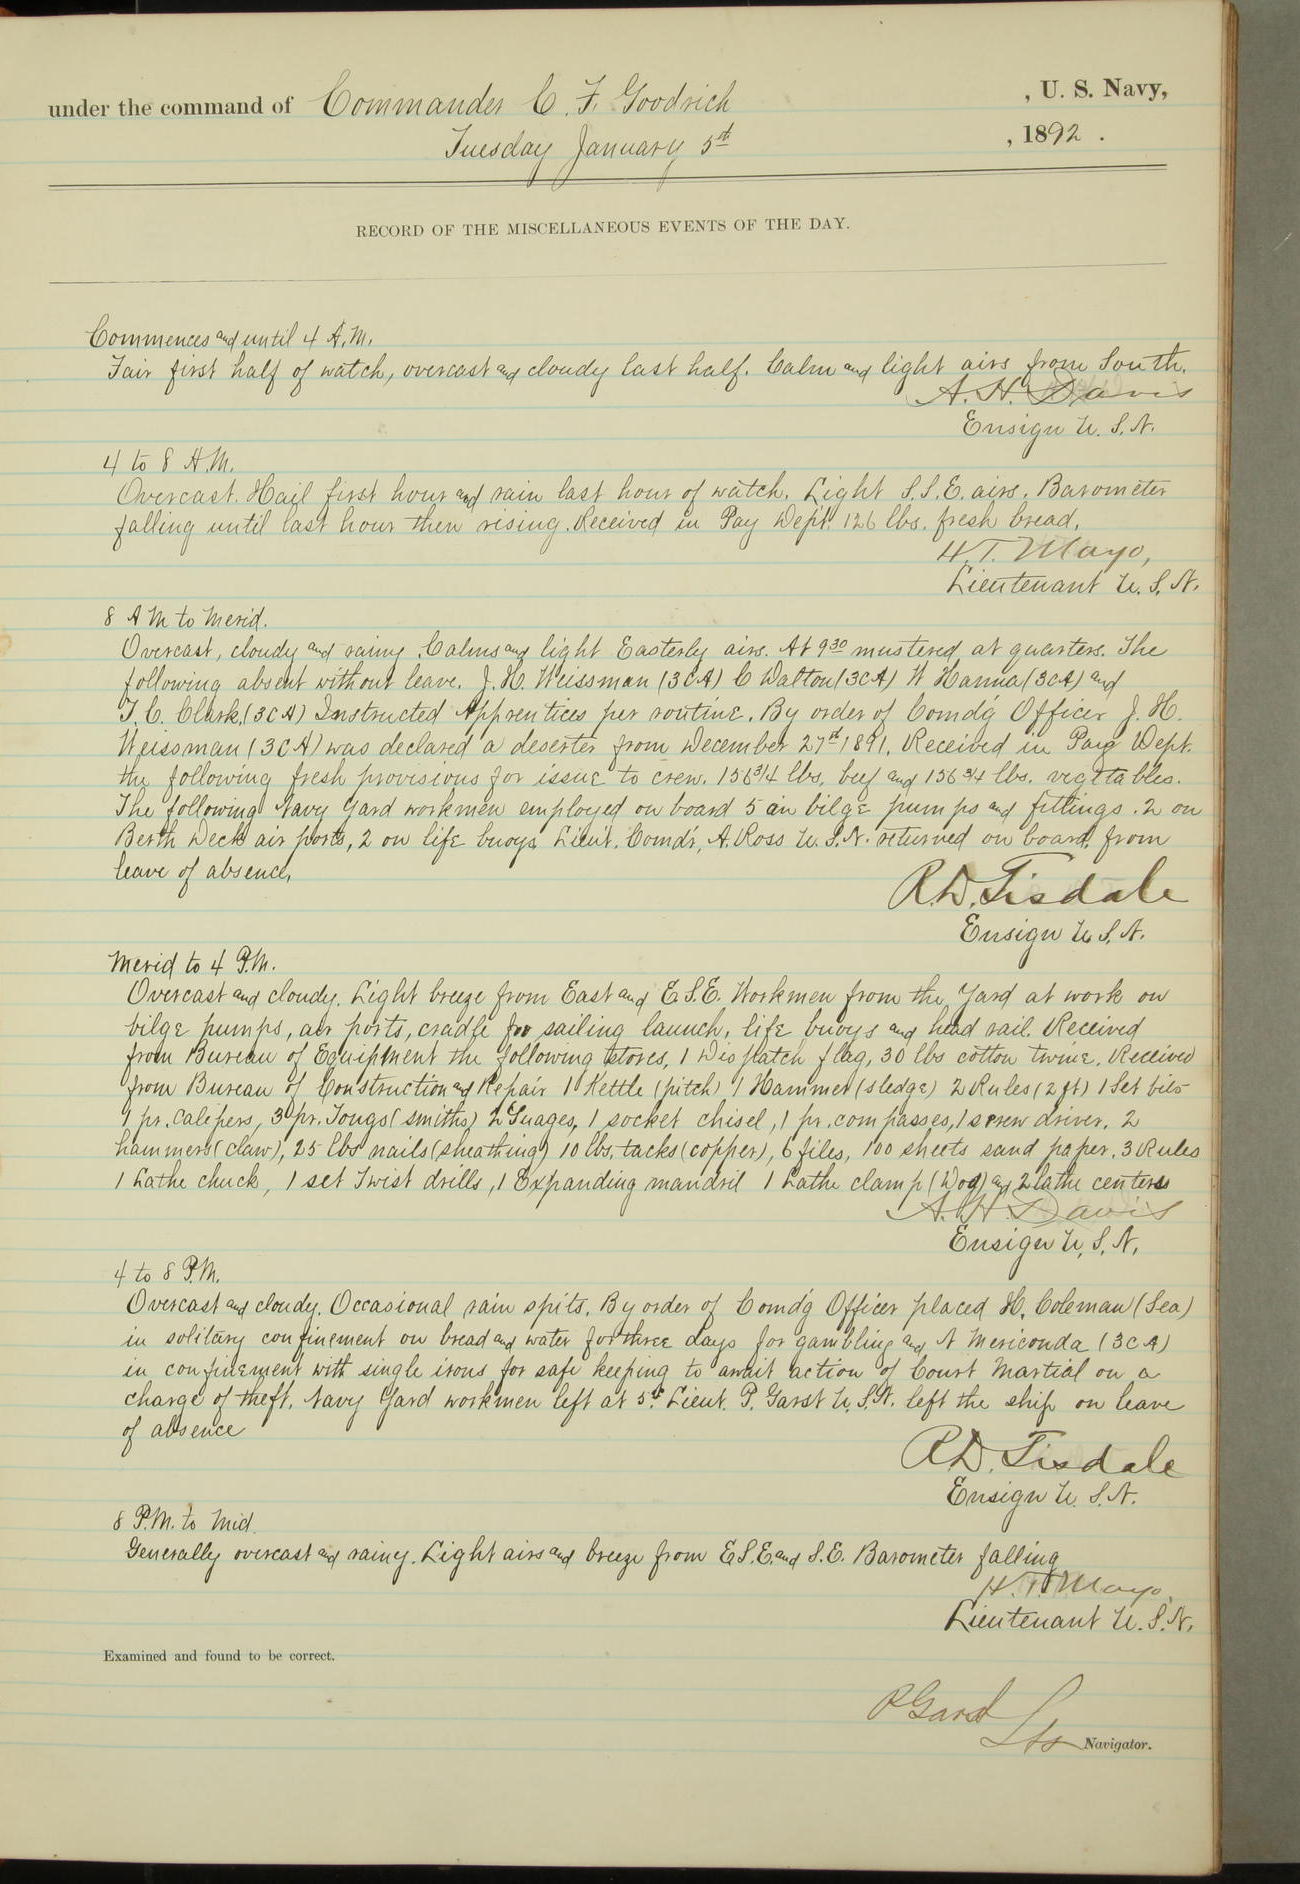 under the command of Commander C. F. Goodrich , U. S. Navy,
Tuesday January 5th , 1892 .
RECORD OF THE MISCELLANEOUS EVENTS OF THE DAY.
Commences and until 4 A.M.
Fair first half of watch, overcast and cloudy last half. Calm and light airs from South.
A. H. Davis
Ensign U. S. N.
4 to 8 A.M.
Overcast. Hail first hour and rain last hour of watch. Light S.S.E. airs. Barometer
falling until last hour then rising. Received in Pay Dept. 126 lbs. fresh bread.
H. T. Mayo,
Lieutenant U. S. N.
8 A M to Merid.
Overcast, cloudy and rainy. Calms and light Easterly airs. At 9 30 mustered at quarters. The
following absent without leave. J. H. Weissman (3CA) C Walton (3CA) W Hanna (3CA) and
T. C. Clark, (3CA) Instructed Apprentices per routine. By order of Comd'g Officer J. H.
Weissman (3CA) was declared a deserter from December 27th 1891. Received in Pay Dept.
the following fresh provisions for issue to crew. 156 3/4 lbs. beef and 156 3/4 lbs. vegetables.
The following Navy Yard workmen employed on board 5 on bilge pumps and fittings. 2 on
Berth Deck air ports, 2 on life buoys. Lieut. Comd'r, A. Ross U. S. N. returned on board from
leave of absence,
R. D. Tisdale
Ensign U. S. N.
Merid to 4 P.M.
Overcast and cloudy. Light breeze from East and E.S.E. Workmen from the Yard at work on
bilge pumps, air ports, cradle for sailing launch, life buoys and head rail. Received
from Bureau of Equipment the following stores, 1 Dispatch flag, 30 lbs cotton twine. Received
from Bureau of Construction and Repair 1 Kettle (pitch) 1 Hammer (sledge) 2 Rules (2 ft) 1 Set bits
1 pr. Calepers, 3 pr. Tongs (smiths) 2 Guages, 1 socket chisel, 1 pr. compasses, 1 screw driver. 2
hammers (claw), 25 lbs nails (sheathing) 10 lbs. tacks (copper), 6 files, 100 sheets sand paper. 3 Rules
1 Lathe chuck, 1 set Twist drills, 1 Expanding mandril 1 Lathe clamp (Dog) and 2 lathe centers
A. H. Davis
Ensign U. S. N.
4 to 8 P.M.
Overcast and cloudy. Occasional rain spits. By order of Comd'g Officer placed H. Coleman (Sea)
in solitary confinement on bread and water for three days for gambling and A Mericonda (3CA)
in confinement with single irons for safe keeping to await action of Court Martial on a
charge of theft. Navy Yard workmen left at 5. Lieut. P. Garst U. S. N. left the ship on leave
of absence
R. D. Tisdale
Ensign U. S. N.
8 P.M. to Mid.
Generally overcast and rainy. Light airs and breeze from E.S.E. and S.E. Barometer falling
H. T. Mayo,
Lieutenant U. S. N.
Examined and found to be correct.
P Garst
Navigator.